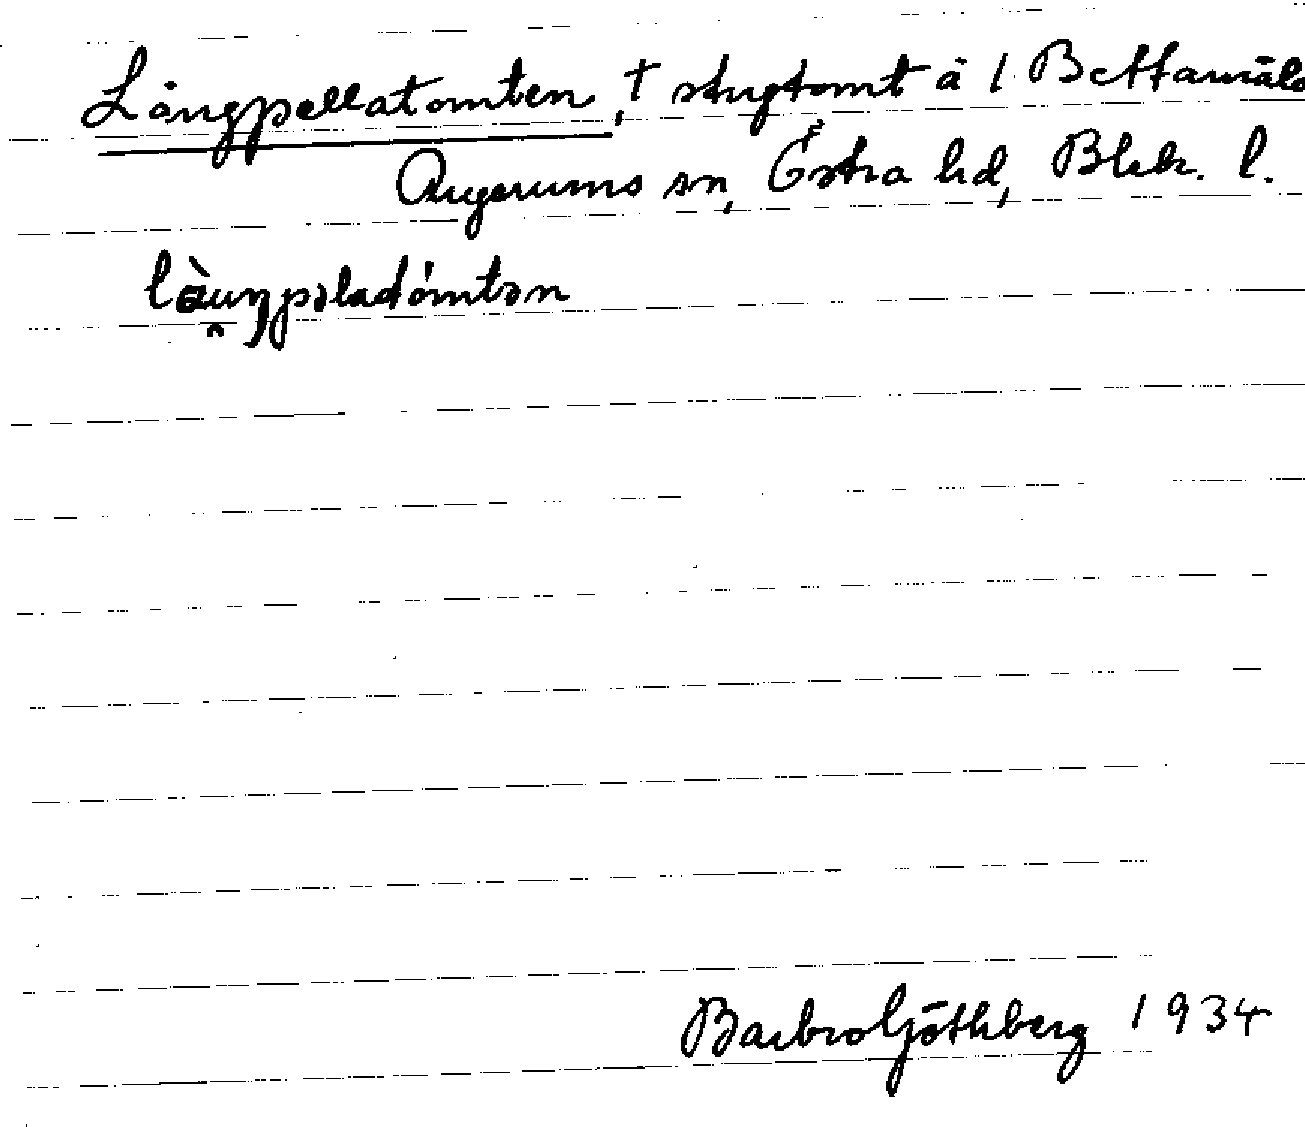 Långpellatomten, † stugtomt å 1 Bettamåla
Augerums sn, Östra hd, Blek. l.
Barbro Göthberg 1934